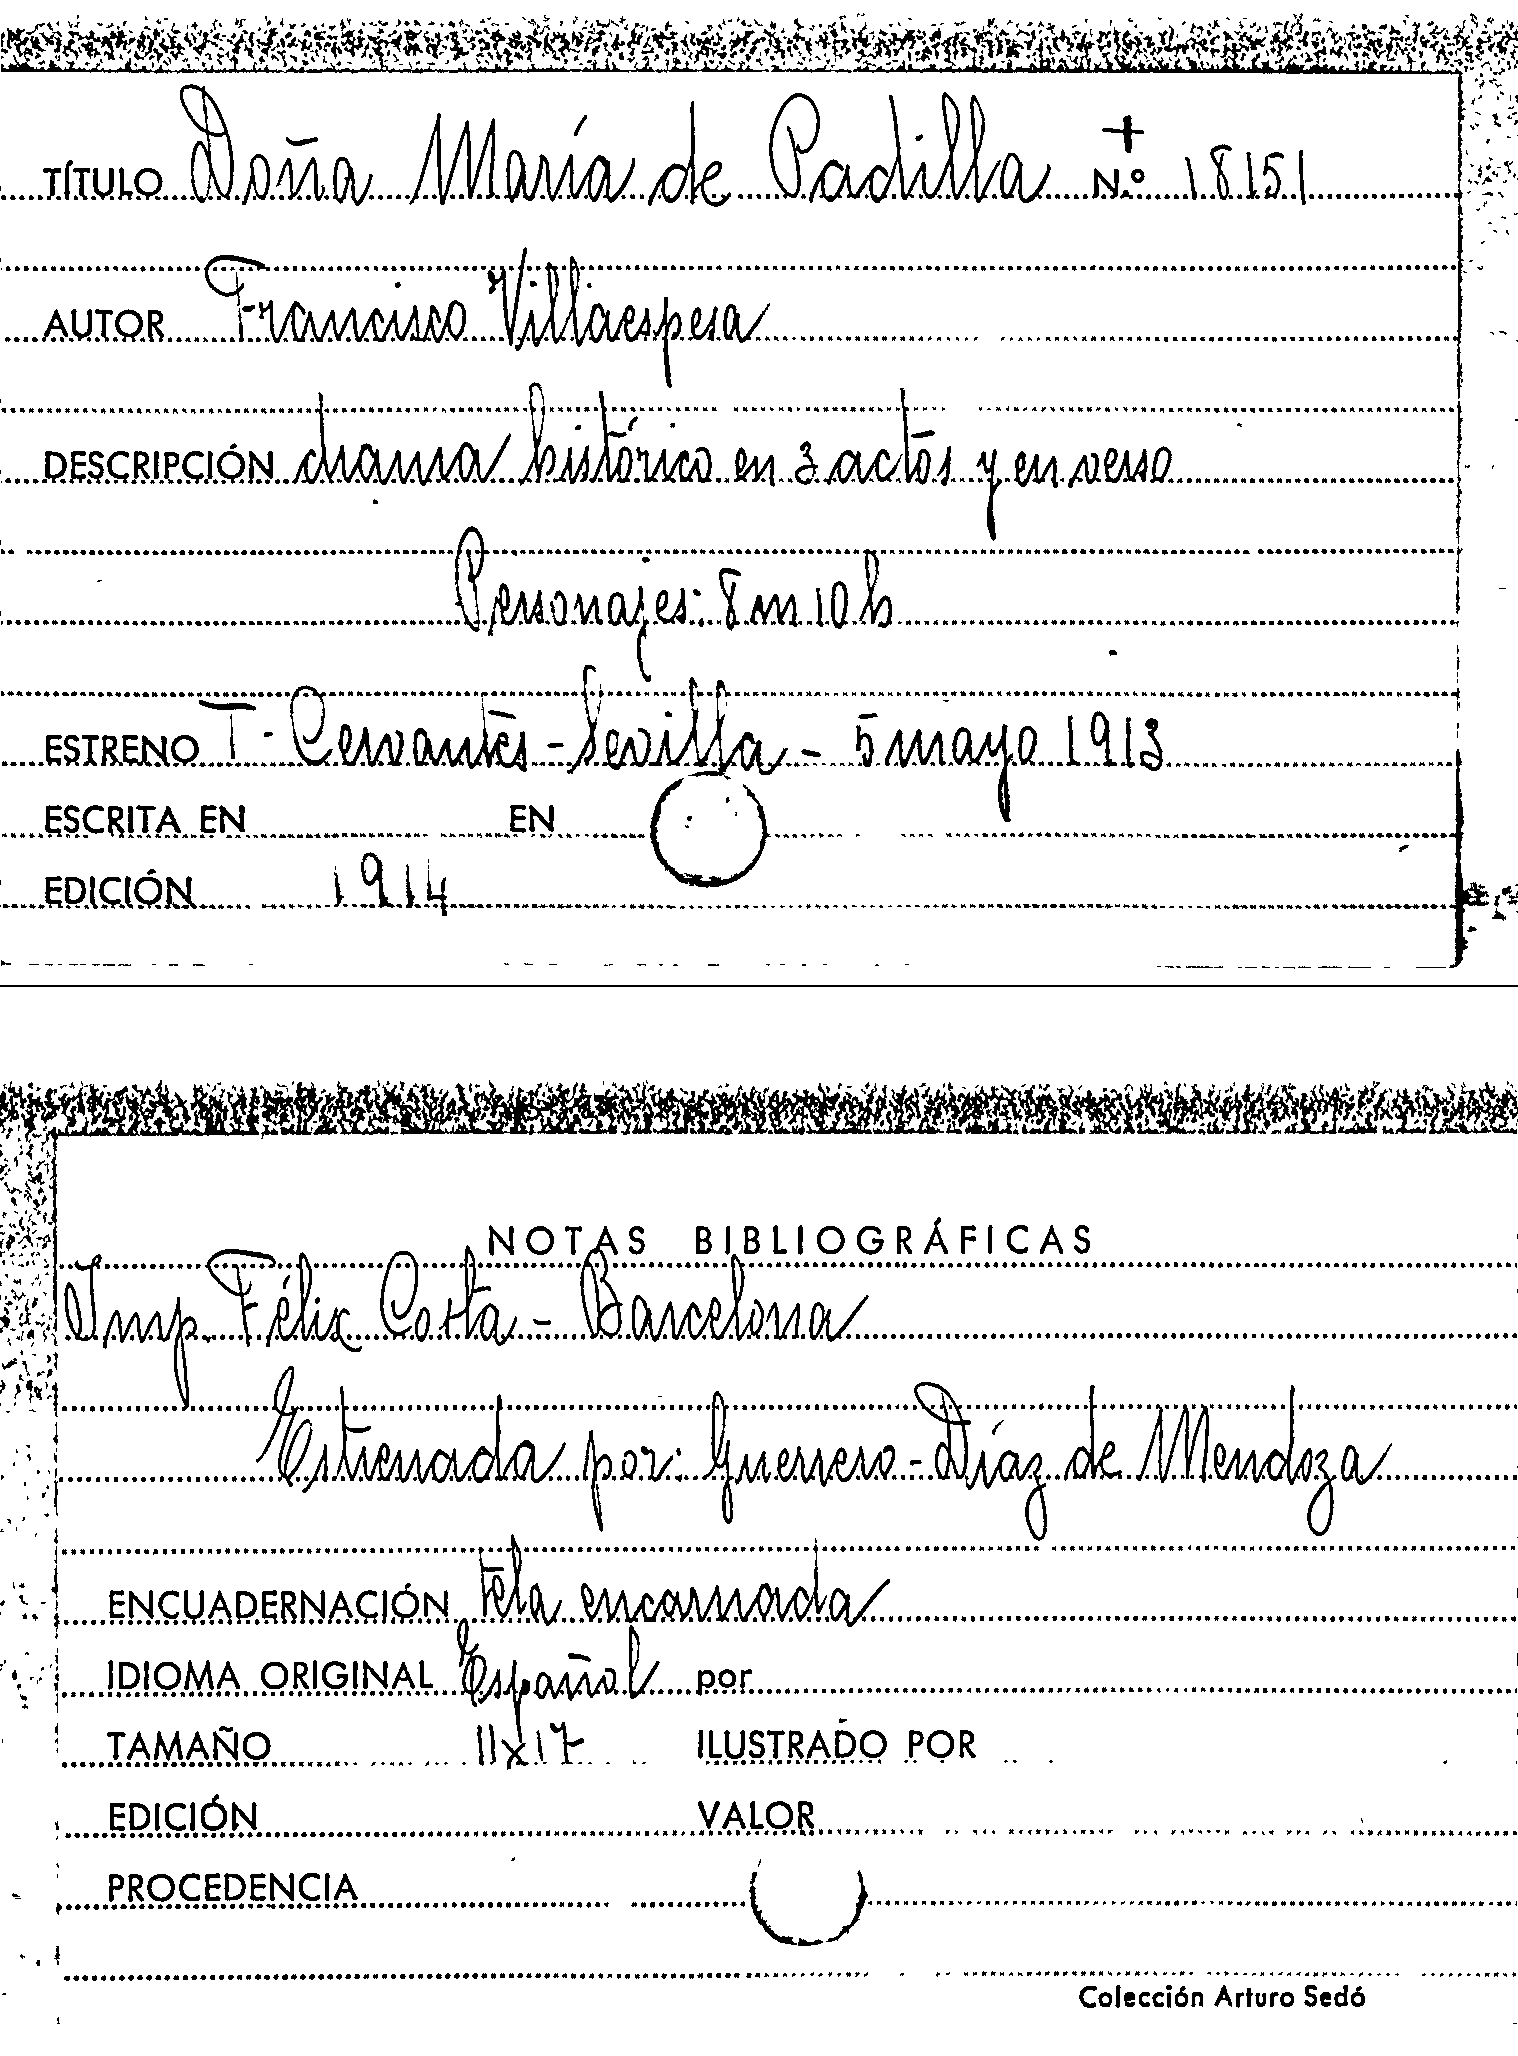 +
TÍTULO Doña María de Padilla N.º 18151
AUTOR Francisco Villaespesa
DESCRIPCIÓN drama histórico en 3 actos y en verso
Personajes: 8 m 10 h
ESTRENO T. Cervantes - Sevilla - 5 mayo 1913
ESCRITA EN EN
EDICIÓN 1914
NOTAS BIBLIOGRÁFICAS
Imp. Félix Costa - Barcelona
Estrenada por: Guerrero - Díaz de Mendoza
ENCUADERNACIÓN tela encarnada
IDIOMA ORIGINAL Español por
TAMAÑO 11x17 ILUSTRADO POR
EDICIÓN VALOR
PROCEDENCIA
Colección Arturo Sedó